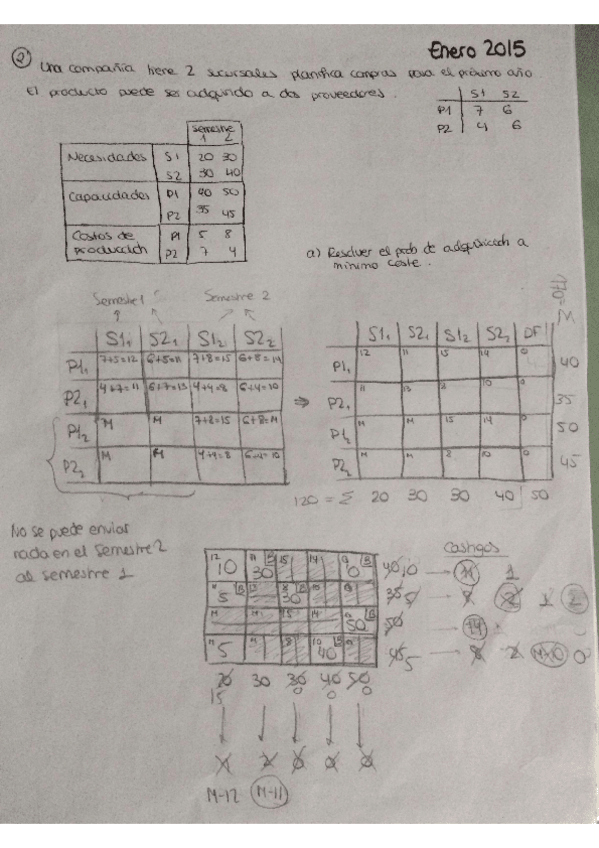 Enero 2015
② Una compañía tiene 2 sucursales planifica compras para el próximo año
El producto puede ser adquirido a dos proveedores.
S1 S2
P1 7 6
P2 4 6
Semestre
1 2
Necesidades S1 20 30
S2 30 40
Capacidades P1 40 50
P2 35 45
Costos de producción P1 5 8
P2 7 4
a) Resolver el prob de adquisición a
mínimo coste.
Semestre 1 Semestre 2
S1₁ S2₁ S1₂ S2₂
P1₁ 7+5=12 6+5=11 7+8=15 6+8=14
P2₁ 4+7=11 6+7=13 4+4=8 6+4=10
P1₂ M M 7+8=15 6+8=14
P2₂ M M 4+4=8 6+4=10
⇒
S1₁ S2₁ S1₂ S2₂ DF
P1₁ 12 11 15 14 0 40
P2₁ 11 13 8 10 0 35
P1₂ M M 15 14 0 50
P2₂ M M 8 10 0 45
120 = Σ 20 30 30 40 50
No se puede enviar
nada en el semestre 2
al semestre 1
Castigos
12 10 11 30 15 14 0 0
5 13 8 30
M M 15 14 0 50
5 10 40
20 30 30 40 50
15 0 0 0
M-12 M-11